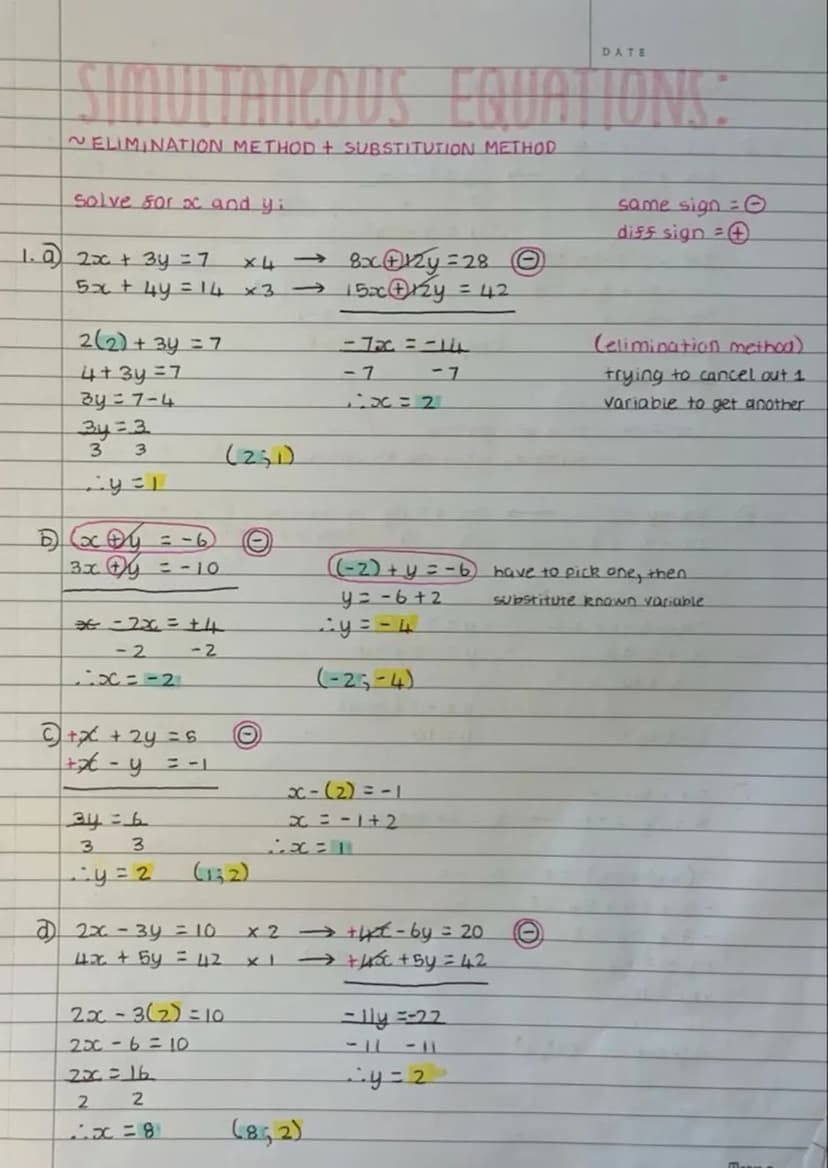 DATE
SIMULTANEOUS EQUATIONS:
~ ELIMINATION METHOD + SUBSTITUTION METHOD
solve for x and y:
same sign = ⊖
diff sign = ⊕
1. a) 2x + 3y = 7 x 4 → 8x + 12y = 28 ⊖
5x + 4y = 14 x 3 → 15x + 12y = 42
2(2) + 3y = 7
4 + 3y = 7
3y = 7 - 4
3y = 3
3 3
∴ y = 1
-7x = -14
-7 -7
∴ x = 2
(2;1)
(elimination method)
trying to cancel out 1
variable to get another
b) (x + y = -6) ⊖
3x + y = -10
-2x = +4
-2 -2
∴ x = -2
(-2) + y = -6
y = -6 + 2
∴ y = -4
(-2;-4)
have to pick one, then
substitute known variable
c) +x + 2y = 5 ⊖
+x - y = -1
3y = 6
3 3
∴ y = 2
(1;2)
x - (2) = -1
x = -1 + 2
∴ x = 1
d) 2x - 3y = 10 x 2 → +4x - 6y = 20 ⊖
4x + 5y = 42 x 1 → +4x + 5y = 42
2x - 3(2) = 10
2x - 6 = 10
2x = 16
2 2
∴ x = 8
-11y = -22
-11 -11
∴ y = 2
(8;2)